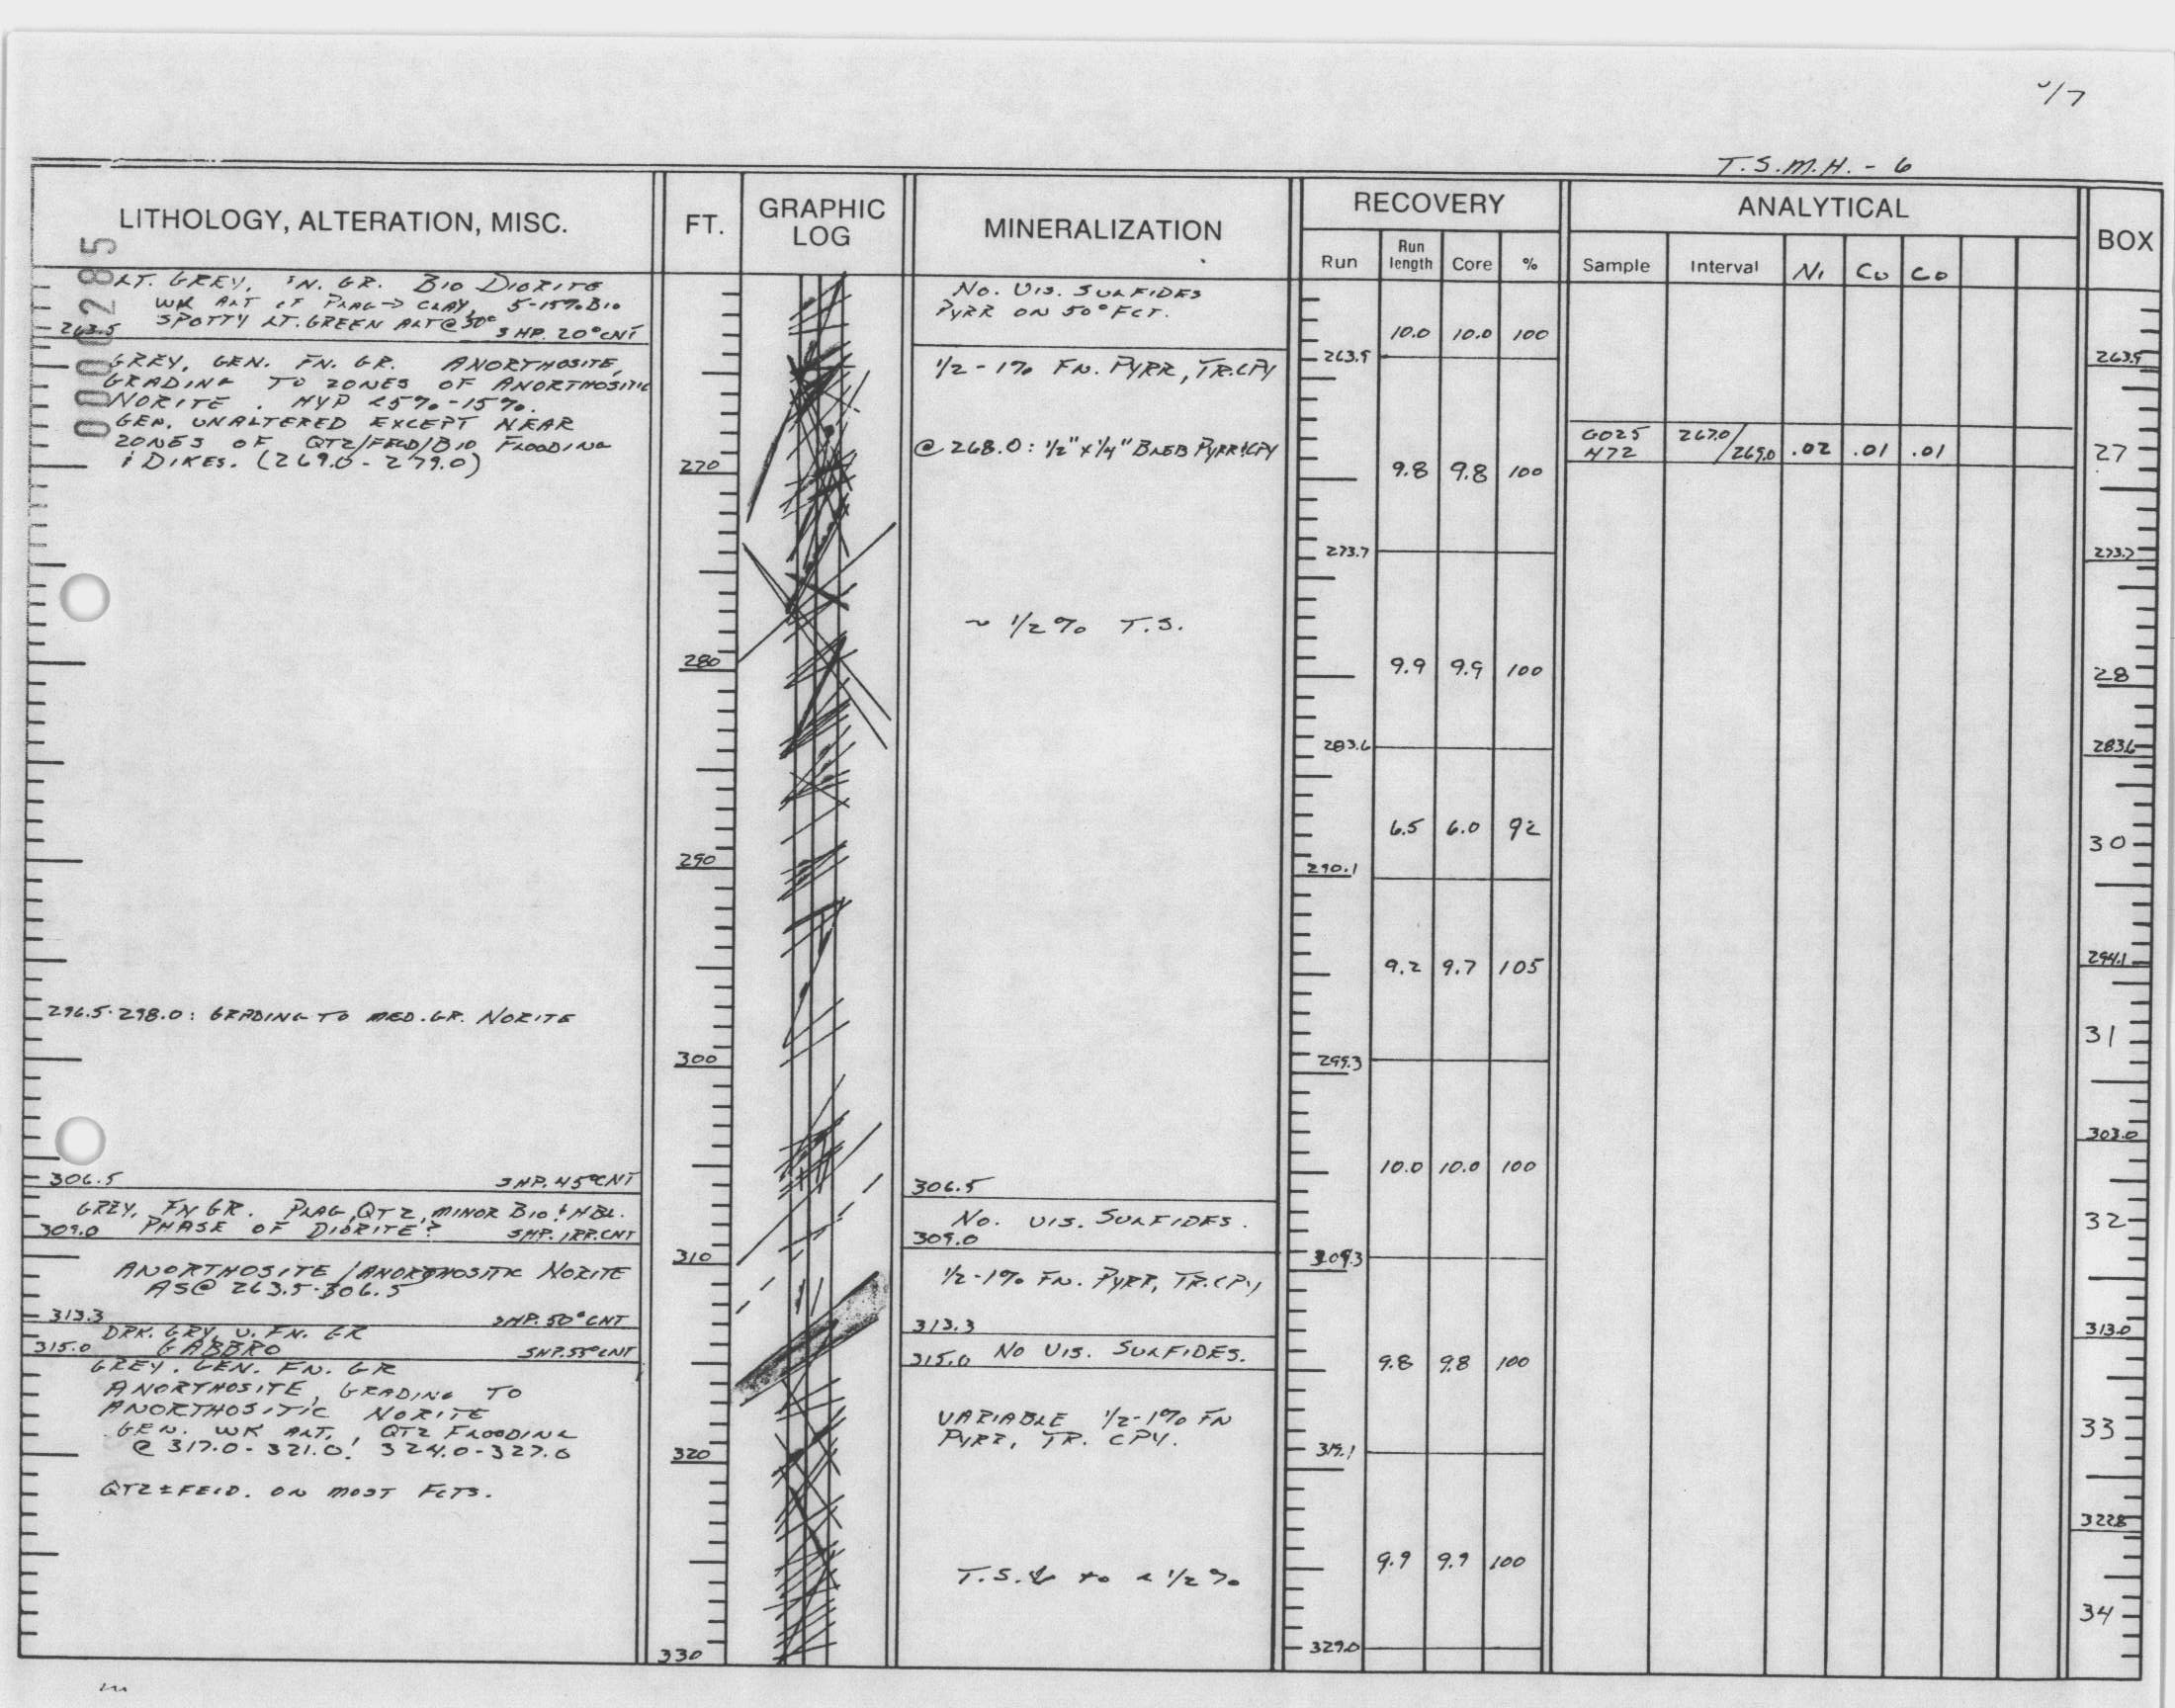 /7
T.S.M.H. - 6
LITHOLOGY, ALTERATION, MISC.
FT.
GRAPHIC LOG
MINERALIZATION
RECOVERY
Run
Run length
Core
%
ANALYTICAL
Sample
Interval
Ni
Cu
Co
BOX
0000285
LT. GREY, FN. GR. BIO DIORITE
WK ALT OF PLAG → CLAY, 5-15% BIO
SPOTTY LT. GREEN ALT @ 50°
263.5 SHP. 20° CNT
GREY, GEN. FN. GR. ANORTHOSITE,
GRADING TO ZONES OF ANORTHOSITIC
NORITE. HYP <5%-15%.
GEN. UNALTERED EXCEPT NEAR
ZONES OF QTZ/FELD/BIO FLOODING
& DIKES. (269.0 - 279.0)
296.5-298.0: GRADING TO MED. GR. NORITE
306.5 SHP. 45° CNT
GREY, FN GR. PLAG, QTZ, MINOR BIO & HBL.
309.0 PHASE OF DIORITE? SHP. IRR. CNT
ANORTHOSITE / ANORTHOSITIC NORITE
AS @ 263.5-306.5
313.3 SHP. 50° CNT
DRK. GRY, V. FN. GR
315.0 GABBRO SHP. 55° CNT
GREY. GEN. FN. GR
ANORTHOSITE, GRADING TO
ANORTHOSITIC NORITE
GEN. WK ALT., QTZ FLOODING
@ 317.0-321.0! 324.0-327.0
QTZ ± FELD. ON MOST FCTS.
270
280
290
300
310
320
330
NO. VIS. SULFIDES
PYRR ON 50° FCT.
1/2 - 1% FN. PYRR, TR. CPY
@ 268.0: 1/2" x 1/4" BLEB PYRR & CPY
~ 1/2% T.S.
306.5
NO. VIS. SULFIDES.
309.0
1/2-1% FN. PYRR, TR. CPY
313.3
315.0 NO VIS. SULFIDES.
VARIABLE 1/2-1% FN
PYRR, TR. CPY.
T.S. ↓ to < 1/2%
10.0 10.0 100
263.5
9.8 9.8 100
273.7
9.9 9.9 100
283.6
6.5 6.0 92
290.1
9.2 9.7 105
299.3
10.0 10.0 100
309.3
9.8 9.8 100
319.1
9.9 9.9 100
329.0
G025 267.0/
H72 269.0 .02 .01 .01
263.5
27
273.7
28
283.6
30
294.1
31
303.0
32
313.0
33
322.8
34